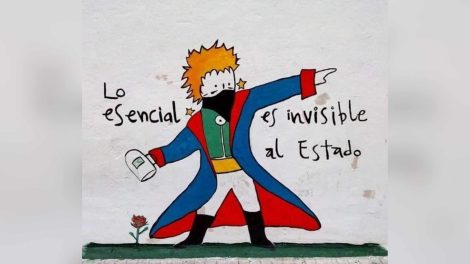 Lo
esencial
es invisible
al Estado